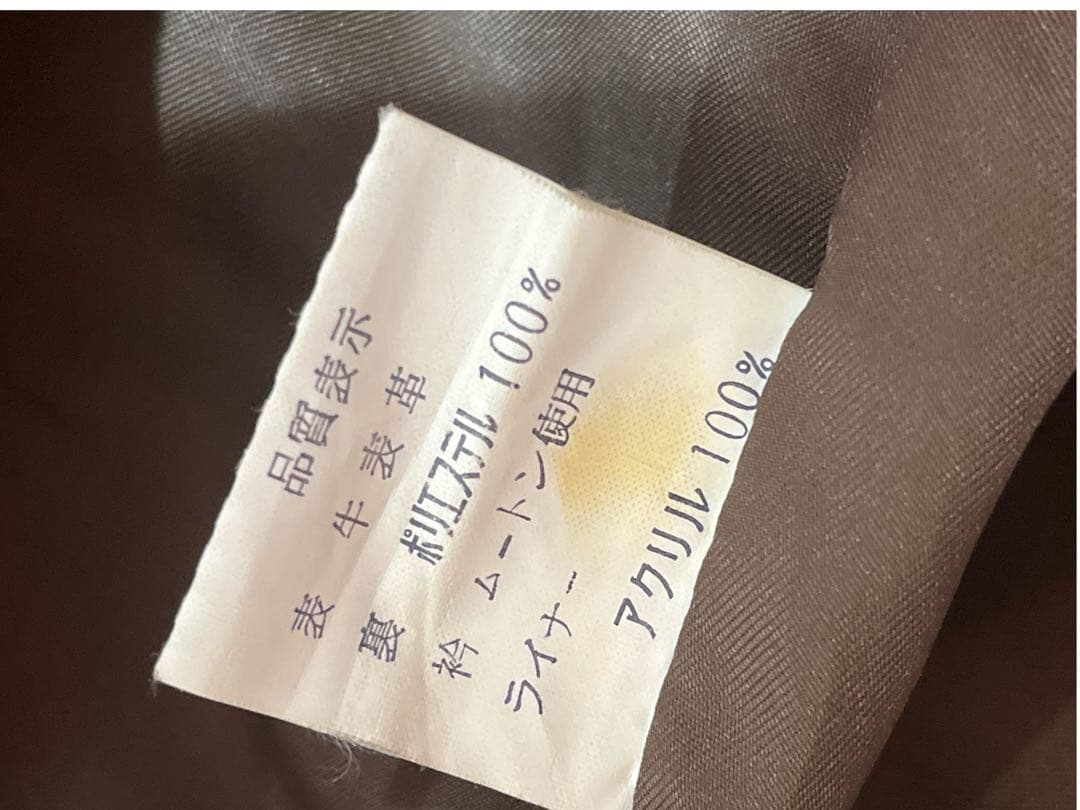 品質表示
表 牛表革
裏 ポリエステル 100%
衿 ムートン使用
ライナー
アクリル 100%